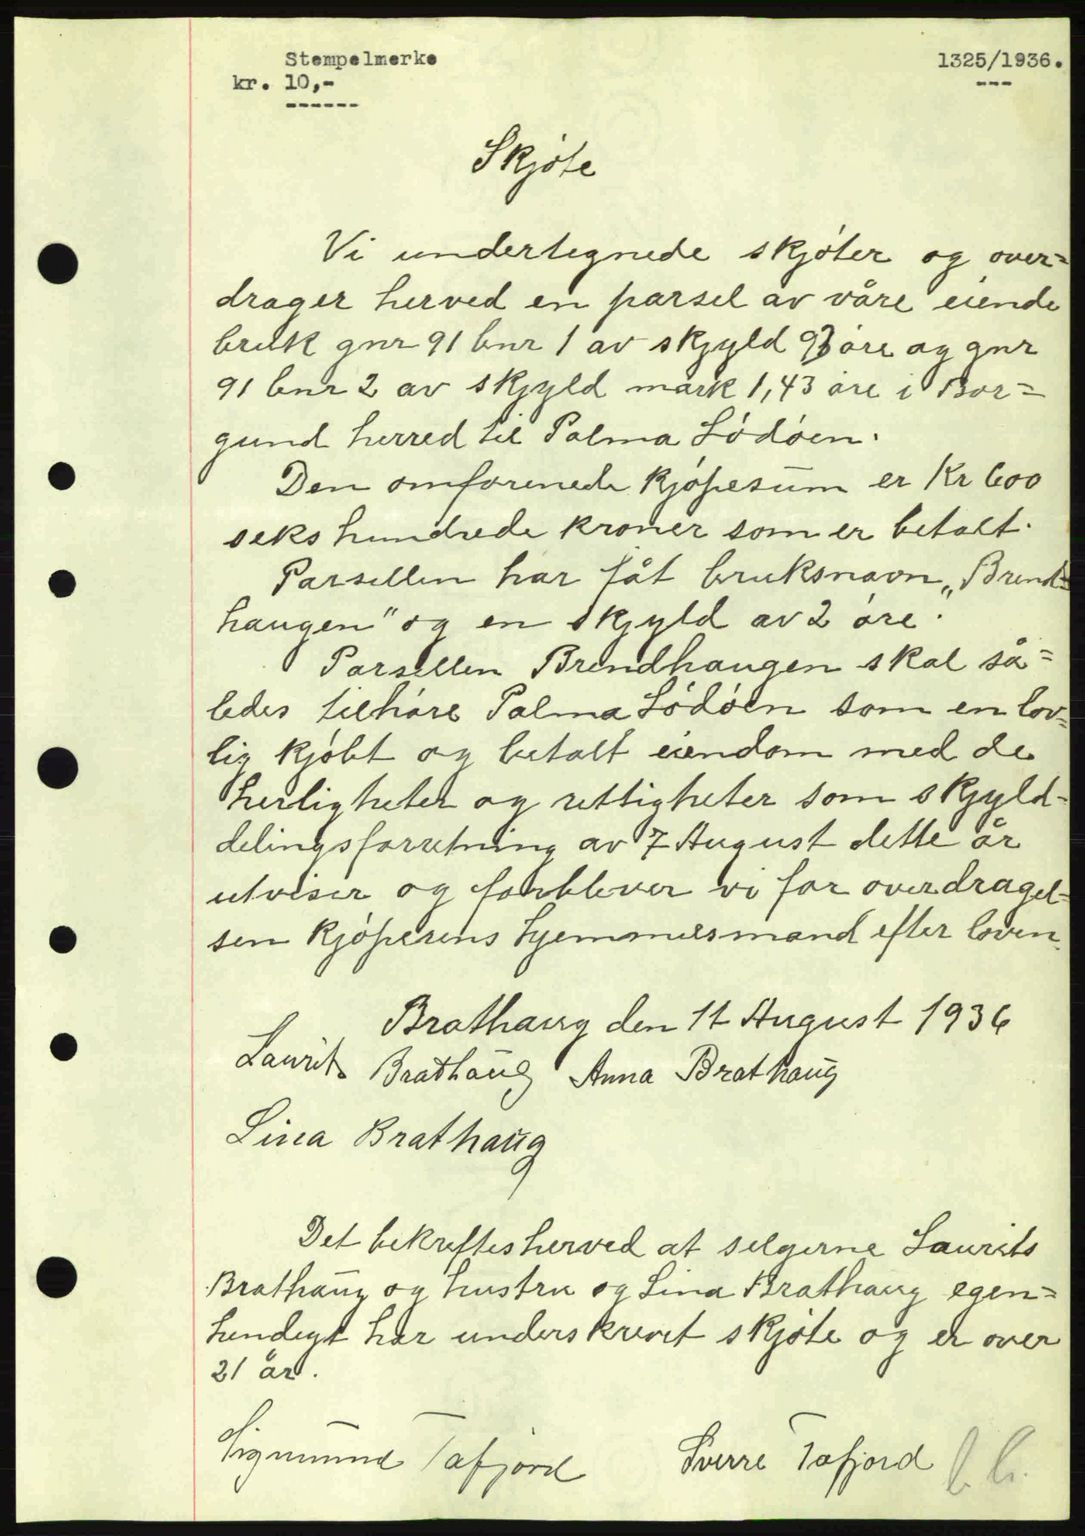 Stempelmerke
kr. 10,-
------
1325/1936.
---
Skjøte
Vi undertegnede skjøter og over=
drager herved en parsel av våre eiende
bruk gnr 91 bnr 1 av skyld 93 øre og gnr
91 bnr 2 av skyld mark 1,43 øre i Bor=
gund herred til Palma Lødøen.
Den omforenede kjøpesum er Kr 600
seks hundrede kroner som er betalt.
Parsellen har fåt bruksnavn „Brend=
haugen" og en skyld av 2 øre.
Parsellen Brendhaugen skal så=
ledes tilhøre Palma Lødøen som en lov=
lig kjøbt og betalt eiendom med de
herligheter og rettigheter som skyld-
delingsforretning av 7 August dette år
utviser og forblever vi for overdragel=
sen kjøperens hjemmelsmand efter loven.
Brathaug den 11 August 1936
Laurits Brathaug Anna Brathaug
Lina Brathaug
Det bekreftes herved at selgerne Laurits
Brathaug og hustru og Lina Brathaug egen=
hendigt har underskrevet skjøte og er over
21 år.
Sigmund Tafjord Sverre Tafjord